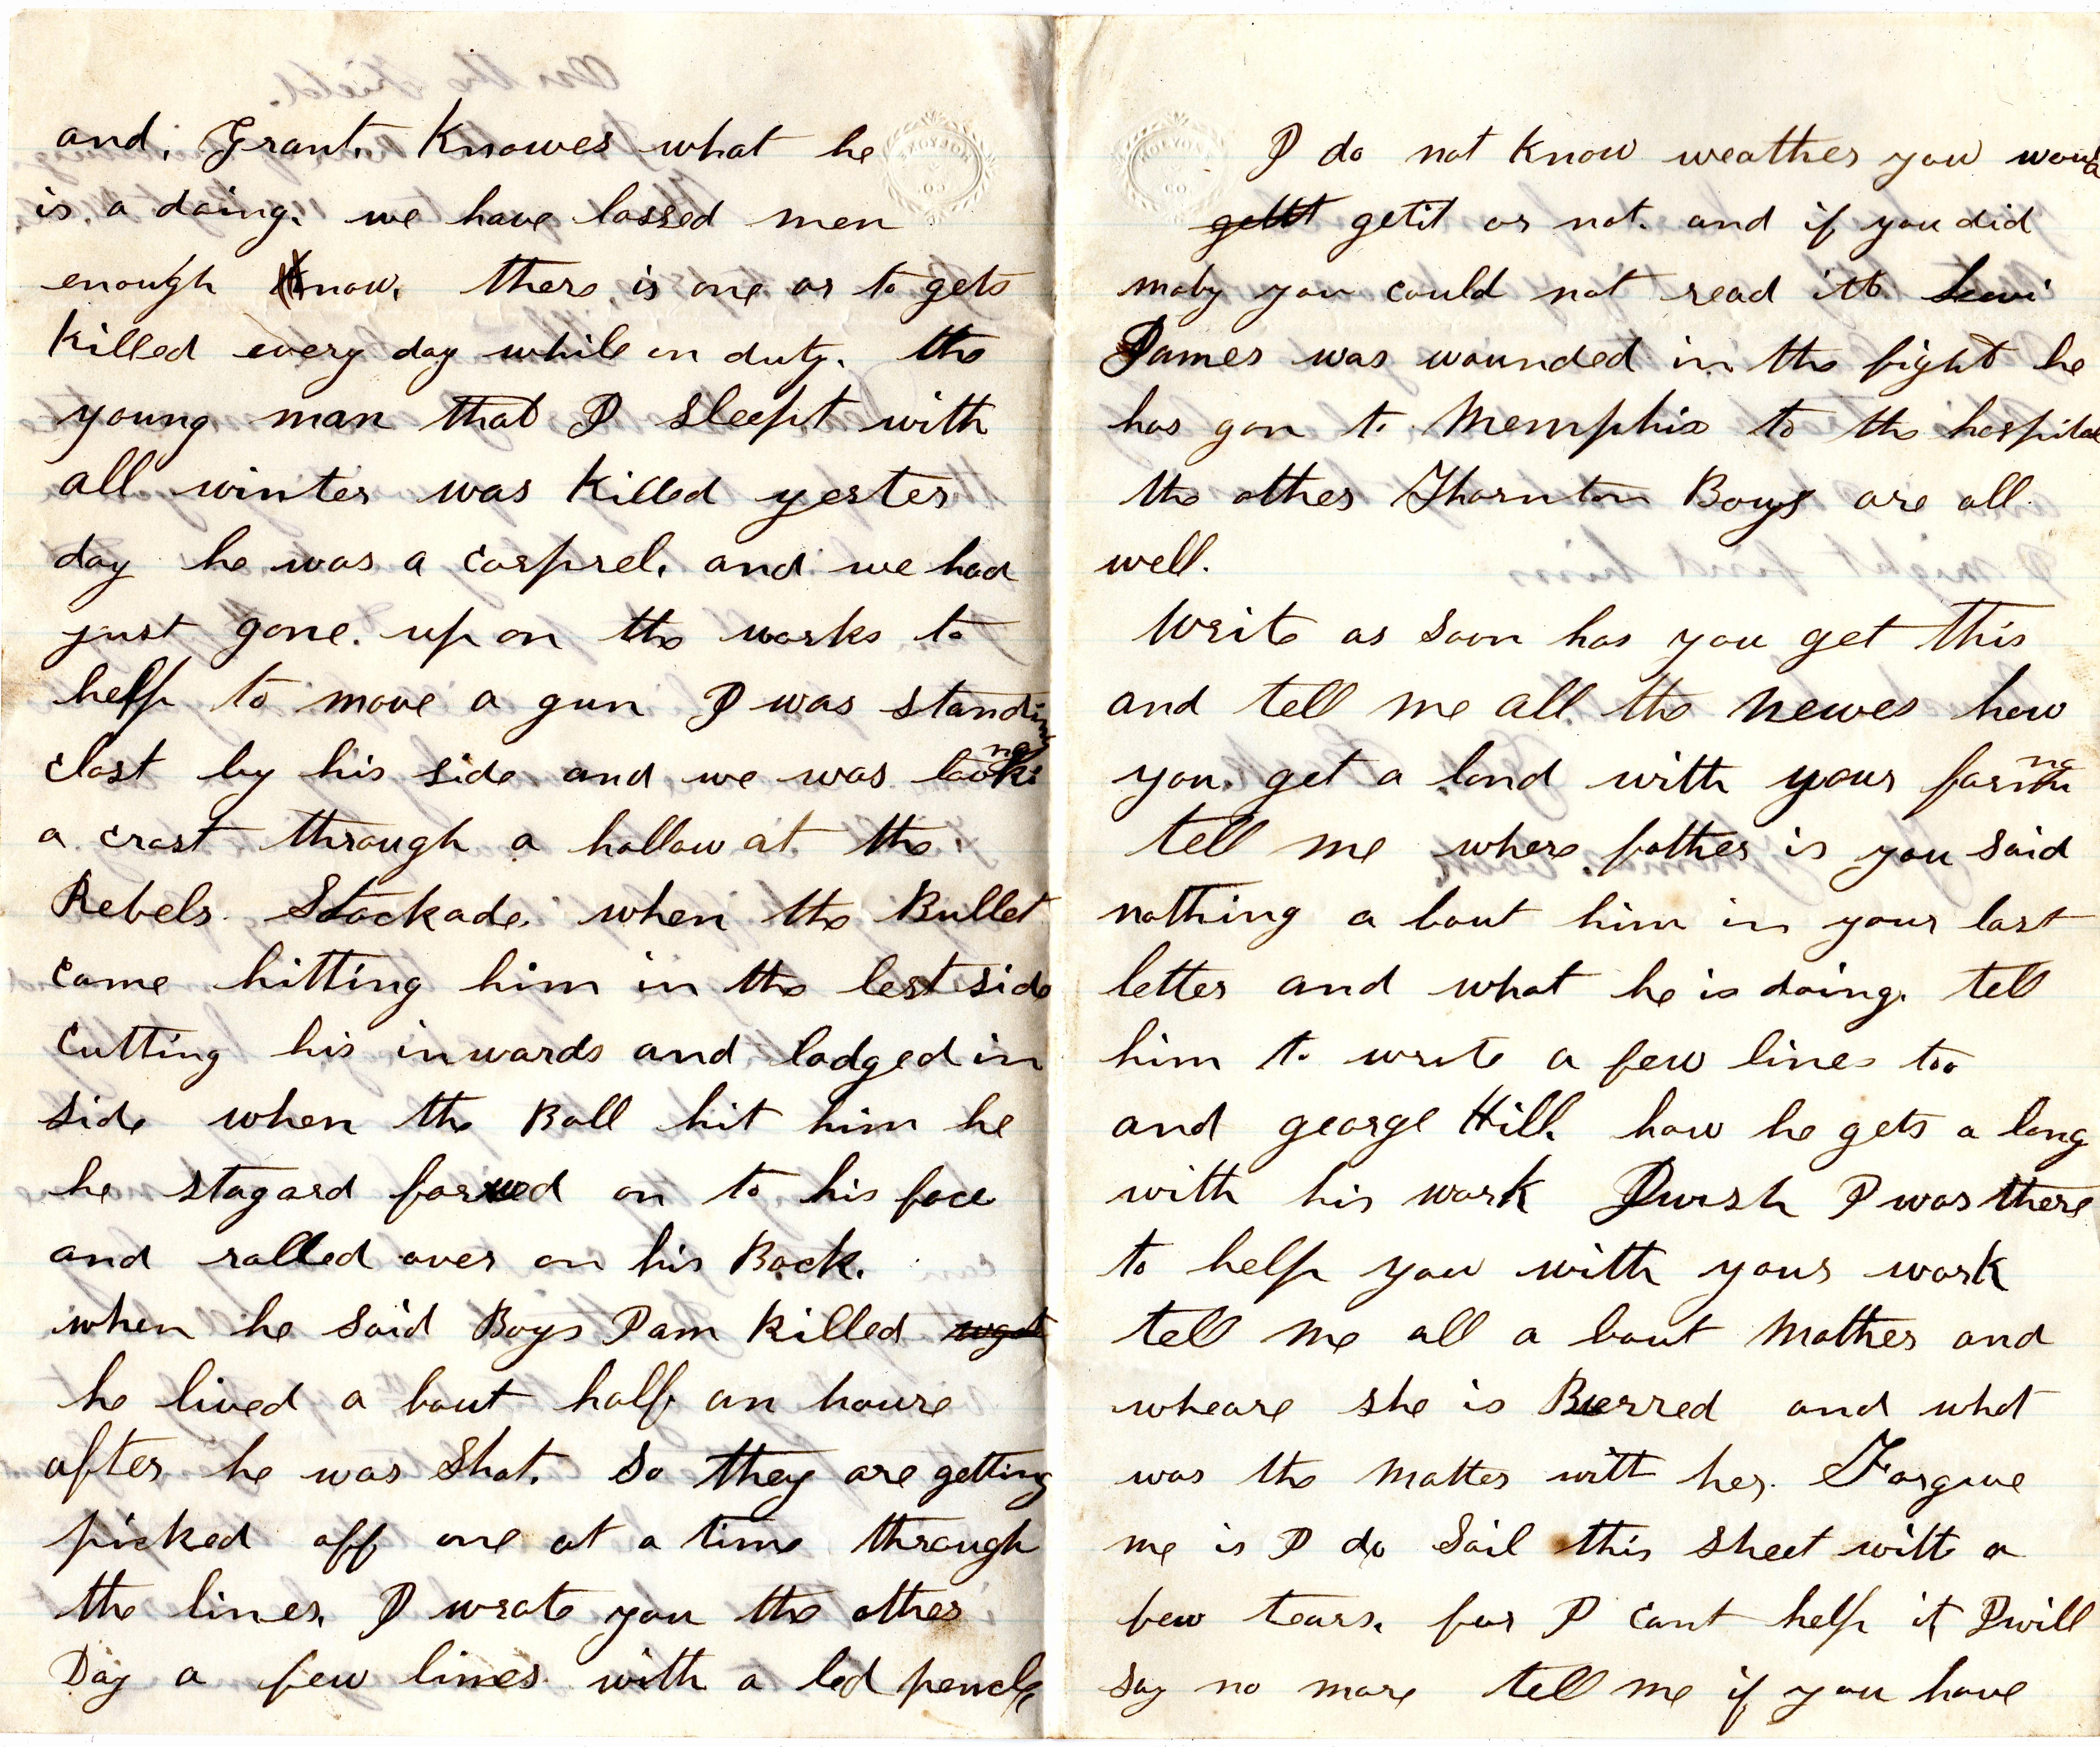 and, Grant, Knowes what he
is. a doing. we have lossed men
enough know, there is one or to gets
killed every day while on duty. the
young man that I sleept with
all winter was killed yester
day he was a corprel, and we had
just gone. up on the works to
help to move a gun I was standing
clost by his side and we was looking
a crost through a hollow at the
Rebels. Stockade. when the Bullet
came hitting him in the left side
cutting his inwards and lodged in
side when the Ball hit him he
he stagard forwed on to his face
and rolled over on his Back.
when he said Boys Iam killed
he lived a bout half an houre
after he was Shot. So they are getting
picked off one at a time through
the lines, I wrote you the other
Day a few lines with a led pencle
HOLYOKE CO.
I do not know weather you would
getit or not. and if you did
maby you could not read itt Leui
James was wounded in the fight he
has gon to Memphis to the hospital
the other Thornton Boys are all
well.
Write as soon has you get this
and tell me all the newes how
you. get a lond with your farming
tell me where father is you said
nothing a bout him in your last
letter and what he is doing. tell
him to write a few lines too
and george Hill. how he gets a long
with his work Iwish I was there
to help you with your work
tell me all a bout Mother and
wheare she is Burred and what
was the matter with her. Forgive
me is I do Soil this sheet with a
few tears. for I cant help it Iwill
say no more tell me if you have